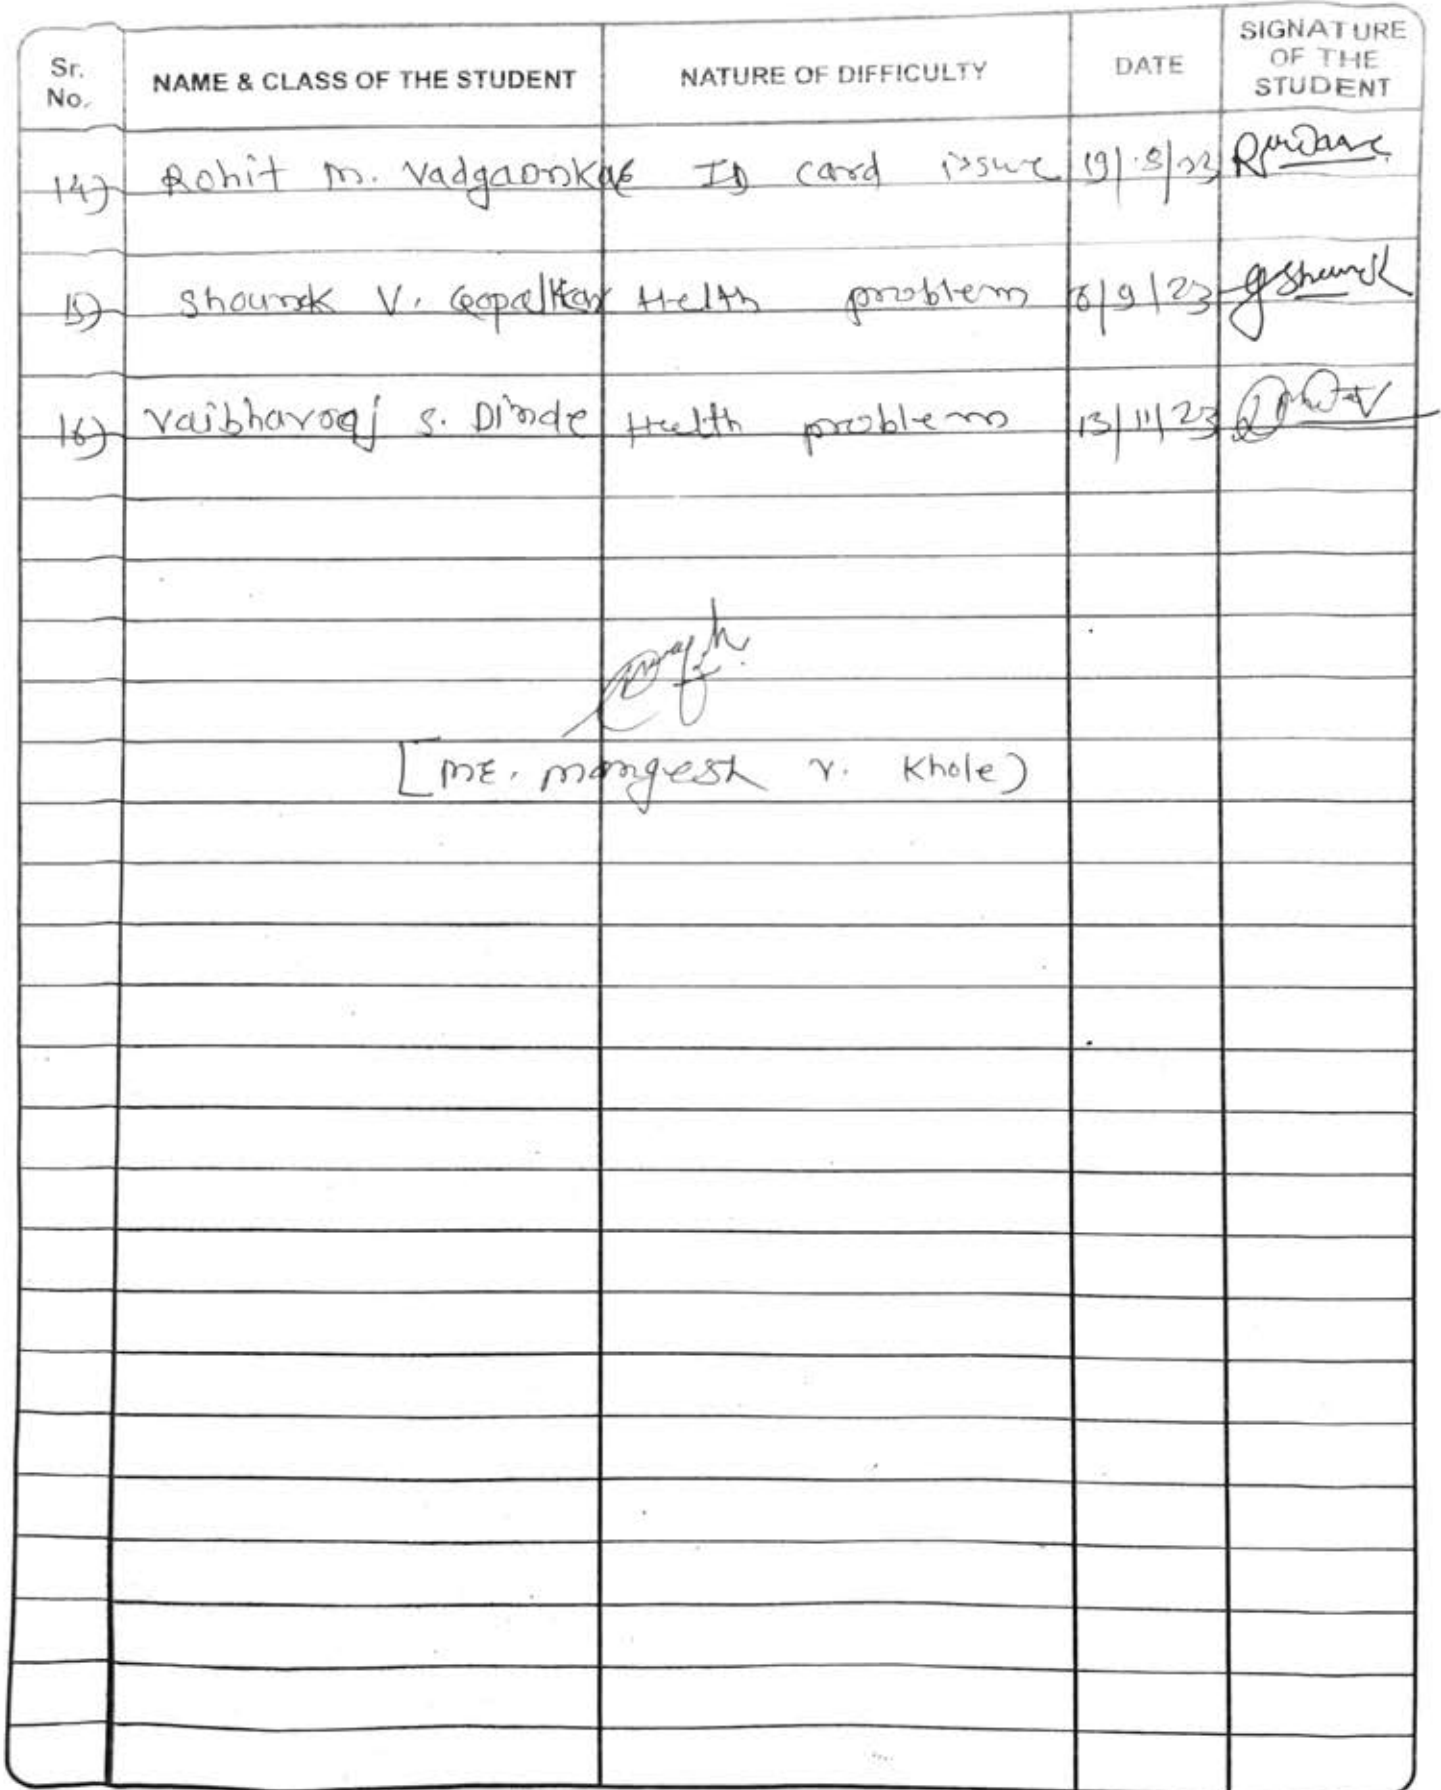 Sr. No. NAME & CLASS OF THE STUDENT NATURE OF DIFFICULTY DATE SIGNATURE OF THE STUDENT
14) Rohit M. Vadgaonkar ID card issue
15) Shounak V. Gopalkar Helth problem 6/9/23
16) Vaibhavraj S. Dinde Helth problem 13/11/23
[Mr. Mangesh V. Khole)